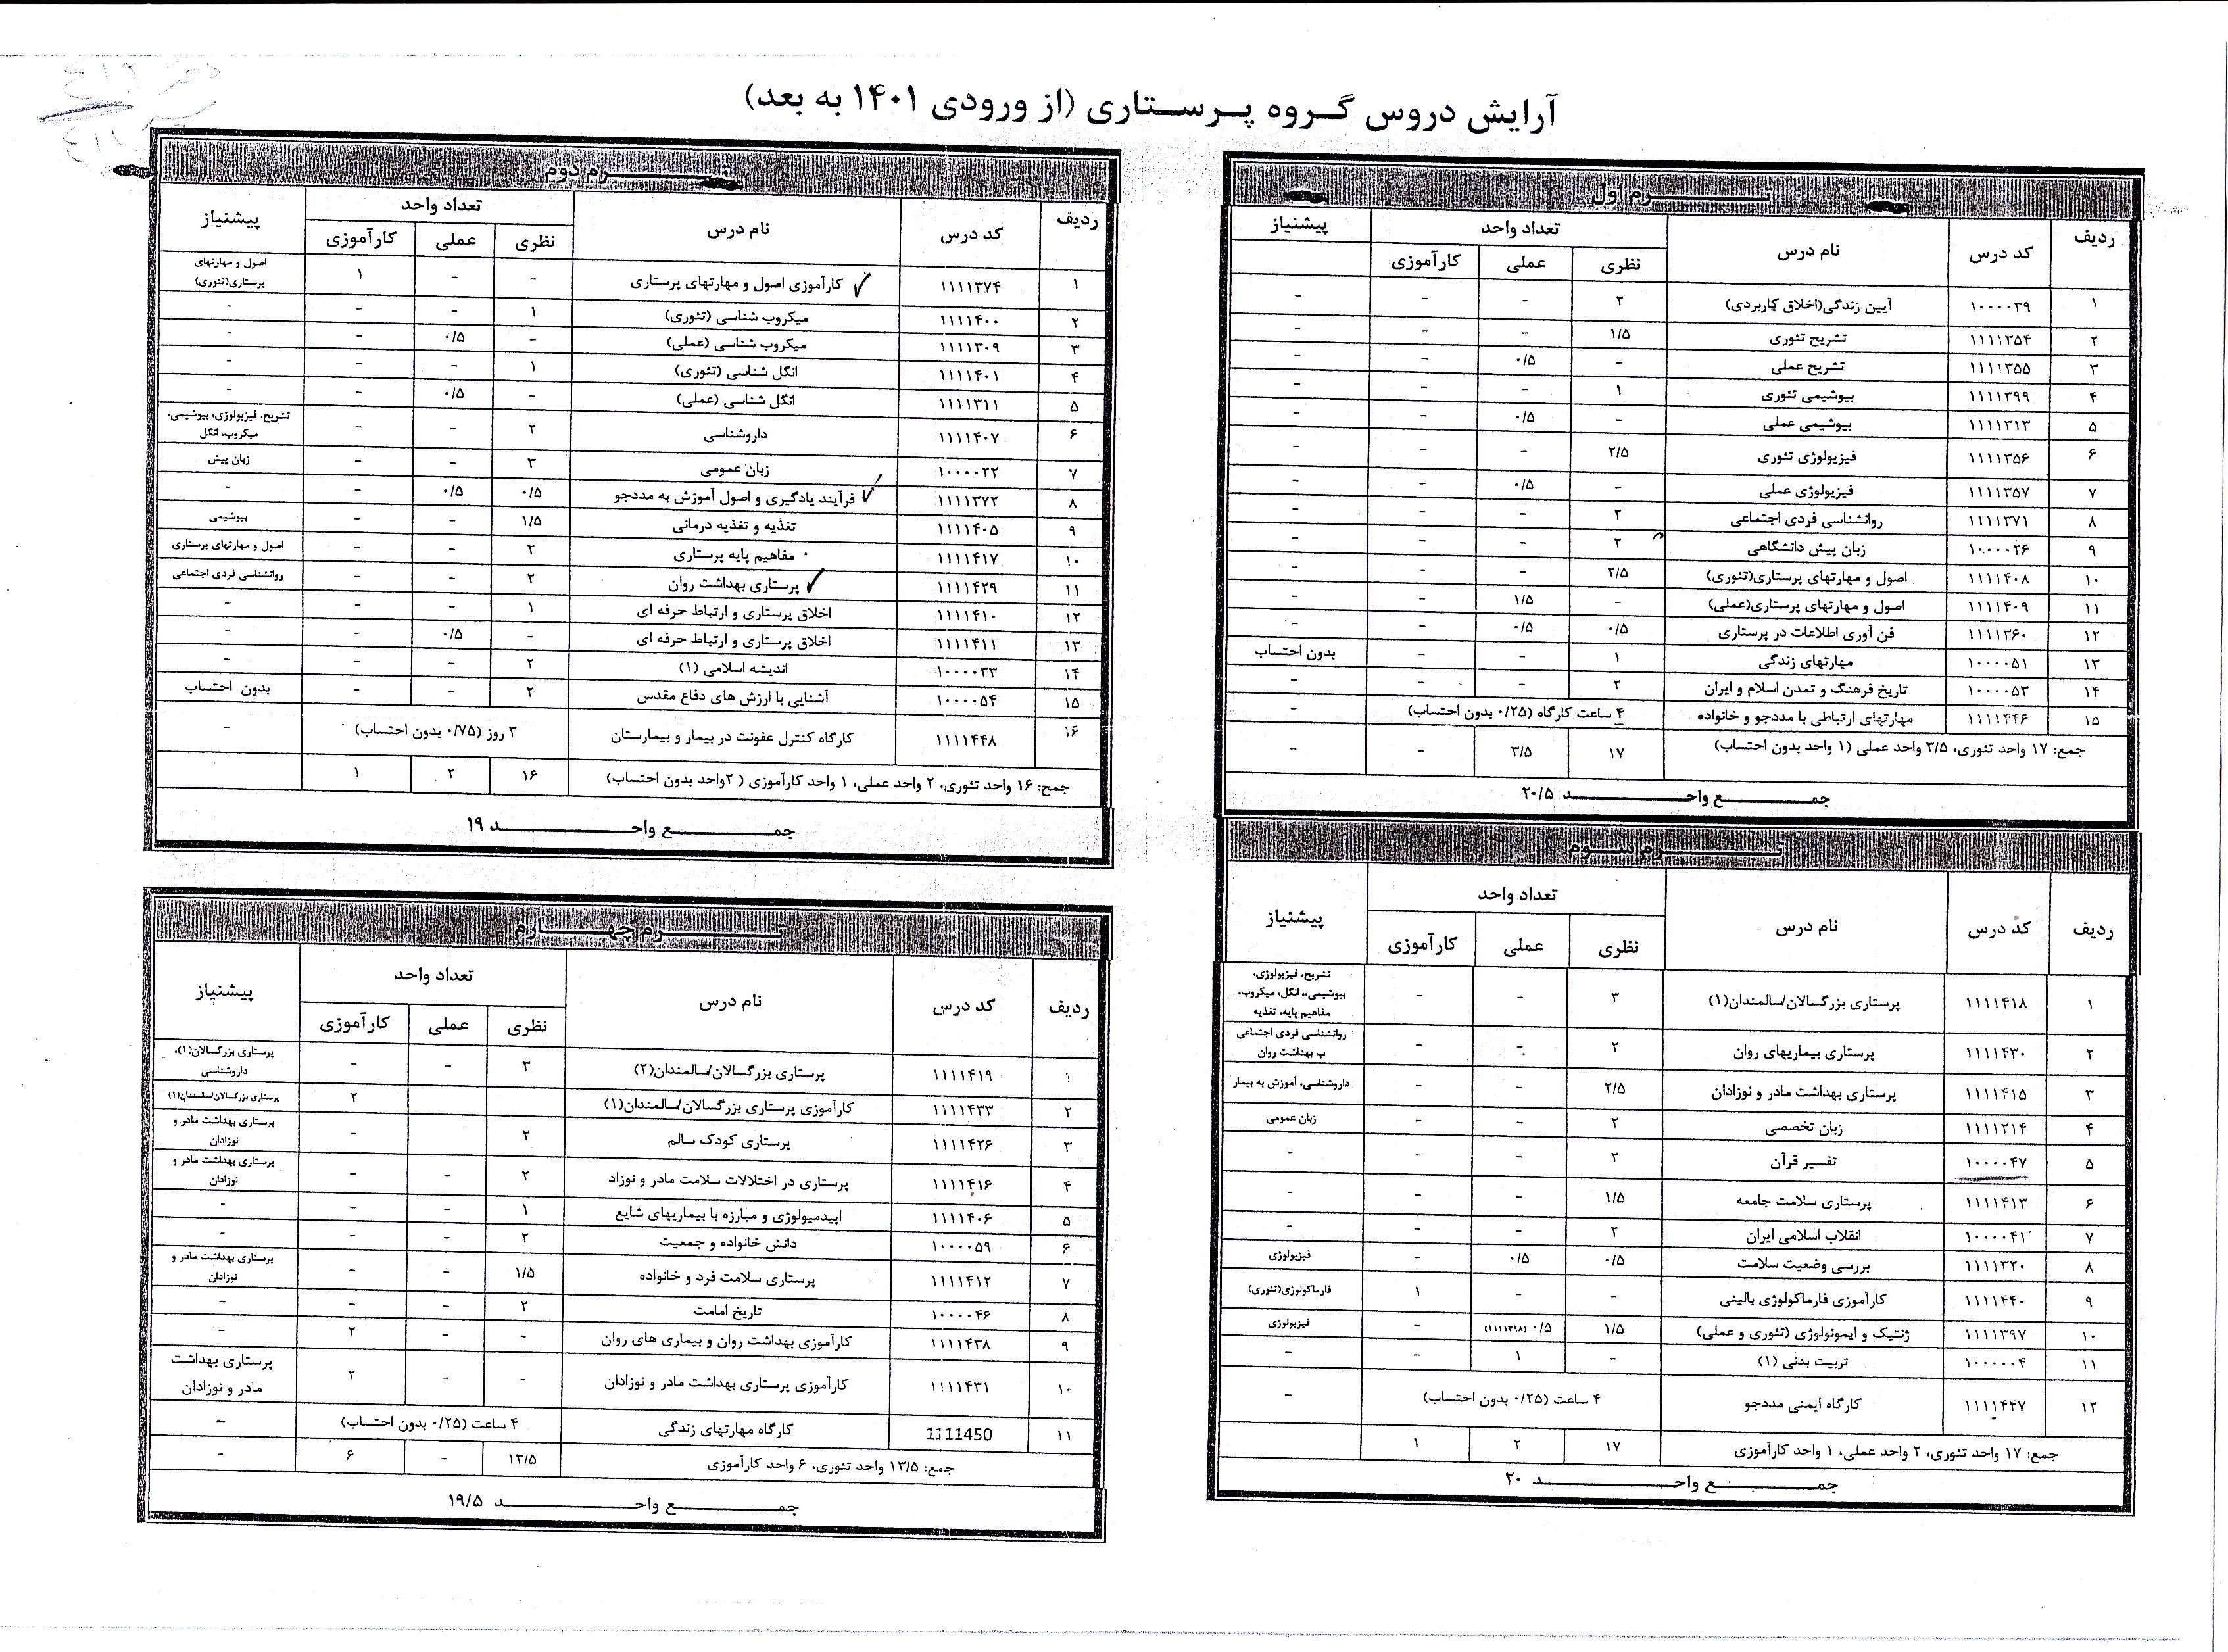 آرایش دروس گروه پرستاری (از ورودی ۱۴۰۱ به بعد)
ترم اول
ردیف کد درس نام درس تعداد واحد پیشنیاز
نظری عملی کارآموزی
۱ ۱۰۰۰۰۳۹ آیین زندگی(اخلاق کاربردی) ۲ - - -
۲ ۱۱۱۱۳۵۴ تشریح تئوری ۱/۵ - - -
۳ ۱۱۱۱۳۵۵ تشریح عملی - ۰/۵ - -
۴ ۱۱۱۱۳۹۹ بیوشیمی تئوری ۱ - - -
۵ ۱۱۱۱۳۱۳ بیوشیمی عملی - ۰/۵ - -
۶ ۱۱۱۱۳۵۶ فیزیولوژی تئوری ۲/۵ - - -
۷ ۱۱۱۱۳۵۷ فیزیولوژی عملی - ۰/۵ - -
۸ ۱۱۱۱۳۷۱ روانشناسی فردی اجتماعی ۲ - - -
۹ ۱۰۰۰۰۲۶ زبان پیش دانشگاهی ۲ - - -
۱۰ ۱۱۱۱۴۰۸ اصول و مهارتهای پرستاری(تئوری) ۲/۵ - - -
۱۱ ۱۱۱۱۴۰۹ اصول و مهارتهای پرستاری(عملی) - ۱/۵ - -
۱۲ ۱۱۱۱۳۶۰ فن آوری اطلاعات در پرستاری ۰/۵ ۰/۵ - -
۱۳ ۱۰۰۰۰۵۱ مهارتهای زندگی ۱ - - بدون احتساب
۱۴ ۱۰۰۰۰۵۳ تاریخ فرهنگ و تمدن اسلام و ایران ۲ - - -
۱۵ ۱۱۱۱۴۴۶ مهارتهای ارتباطی با مددجو و خانواده ۴ ساعت کارگاه (۰/۲۵ بدون احتساب) -
جمع: ۱۷ واحد تئوری، ۳/۵ واحد عملی (۱ واحد بدون احتساب) ۱۷ ۳/۵ - -
جمع واحد ۲۰/۵
ترم دوم
ردیف کد درس نام درس تعداد واحد پیشنیاز
نظری عملی کارآموزی
۱ ۱۱۱۱۳۷۴ کارآموزی اصول و مهارتهای پرستاری - - ۱ اصول و مهارتهای پرستاری(تئوری)
۲ ۱۱۱۱۴۰۰ میکروب شناسی (تئوری) ۱ - - -
۳ ۱۱۱۱۳۰۹ میکروب شناسی (عملی) - ۰/۵ - -
۴ ۱۱۱۱۴۰۱ انگل شناسی (تئوری) ۱ - - -
۵ ۱۱۱۱۳۱۱ انگل شناسی (عملی) - ۰/۵ - -
۶ ۱۱۱۱۴۰۷ داروشناسی ۲ - - تشریح، فیزیولوژی، بیوشیمی، میکروب، انگل
۷ ۱۰۰۰۰۲۲ زبان عمومی ۳ - - زبان پیش
۸ ۱۱۱۱۳۷۲ فرآیند یادگیری و اصول آموزش به مددجو ۰/۵ ۰/۵ - -
۹ ۱۱۱۱۴۰۵ تغذیه و تغذیه درمانی ۱/۵ - - بیوشیمی
۱۰ ۱۱۱۱۴۱۷ مفاهیم پایه پرستاری ۲ - - اصول و مهارتهای پرستاری
۱۱ ۱۱۱۱۴۲۹ پرستاری بهداشت روان ۲ - - روانشناسی فردی اجتماعی
۱۲ ۱۱۱۱۴۱۰ اخلاق پرستاری و ارتباط حرفه ای ۱ - - -
۱۳ ۱۱۱۱۴۱۱ اخلاق پرستاری و ارتباط حرفه ای - ۰/۵ - -
۱۴ ۱۰۰۰۰۳۳ اندیشه اسلامی (۱) ۲ - - -
۱۵ ۱۰۰۰۰۵۴ آشنایی با ارزش های دفاع مقدس ۲ - - بدون احتساب
۱۶ ۱۱۱۱۴۴۸ کارگاه کنترل عفونت در بیمار و بیمارستان ۳ روز (۰/۷۵ بدون احتساب) -
جمع: ۱۶ واحد تئوری، ۲ واحد عملی، ۱ واحد کارآموزی (۲واحد بدون احتساب) ۱۶ ۲ ۱
جمع واحد ۱۹
ترم سوم
ردیف کد درس نام درس تعداد واحد پیشنیاز
نظری عملی کارآموزی
۱ ۱۱۱۱۴۱۸ پرستاری بزرگسالان/سالمندان(۱) ۳ - - تشریح، فیزیولوژی، بیوشیمی،، انگل، میکروب، مفاهیم پایه، تغذیه
۲ ۱۱۱۱۴۳۰ پرستاری بیماریهای روان ۲ - - روانشناسی فردی اجتماعی پ بهداشت روان
۳ ۱۱۱۱۴۱۵ پرستاری بهداشت مادر و نوزادان ۲/۵ - - داروشناسی، آموزش به بیمار
۴ ۱۱۱۱۲۱۴ زبان تخصصی ۲ - - زبان عمومی
۵ ۱۰۰۰۰۴۷ تفسیر قرآن ۲ - - -
۶ ۱۱۱۱۴۱۳ پرستاری سلامت جامعه ۱/۵ - - -
۷ ۱۰۰۰۰۴۱ انقلاب اسلامی ایران ۲ - - -
۸ ۱۱۱۱۳۲۰ بررسی وضعیت سلامت ۰/۵ ۰/۵ - فیزیولوژی
۹ ۱۱۱۱۴۴۰ کارآموزی فارماکولوژی بالینی - - ۱ فارماکولوژی(تئوری)
۱۰ ۱۱۱۱۳۹۷ ژنتیک و ایمونولوژی (تئوری و عملی) ۱/۵ ۰/۵ (۱۱۱۱۳۹۸) - فیزیولوژی
۱۱ ۱۰۰۰۰۰۴ تربیت بدنی (۱) - ۱ - -
۱۲ ۱۱۱۱۴۴۷ کارگاه ایمنی مددجو ۴ ساعت (۰/۲۵ بدون احتساب) -
جمع: ۱۷ واحد تئوری، ۲ واحد عملی، ۱ واحد کارآموزی ۱۷ ۲ ۱
جمع واحد ۲۰
ترم چهارم
ردیف کد درس نام درس تعداد واحد پیشنیاز
نظری عملی کارآموزی
۱ ۱۱۱۱۴۱۹ پرستاری بزرگسالان/سالمندان(۲) ۳ - - پرستاری بزرگسالان(۱)، داروشناسی
۲ ۱۱۱۱۴۳۳ کارآموزی پرستاری بزرگسالان/سالمندان(۱) ۲ پرستاری بزرگسالان/سلمندان(۱)
۳ ۱۱۱۱۴۲۶ پرستاری کودک سالم ۲ - پرستاری بهداشت مادر و نوزادان
۴ ۱۱۱۱۴۱۶ پرستاری در اختلالات سلامت مادر و نوزاد ۲ - - پرستاری بهداشت مادر و نوزادان
۵ ۱۱۱۱۴۰۶ اپیدمیولوژی و مبارزه با بیماریهای شایع ۱ - - -
۶ ۱۰۰۰۰۵۹ دانش خانواده و جمعیت ۲ - - -
۷ ۱۱۱۱۴۱۲ پرستاری سلامت فرد و خانواده ۱/۵ - - پرستاری بهداشت مادر و نوزادان
۸ ۱۰۰۰۰۴۶ تاریخ امامت ۲ - - -
۹ ۱۱۱۱۴۳۸ کارآموزی بهداشت روان و بیماری های روان - - ۲ -
۱۰ ۱۱۱۱۴۳۱ کارآموزی پرستاری بهداشت مادر و نوزادان - - ۲ پرستاری بهداشت مادر و نوزادان
۱۱ 1111450 کارگاه مهارتهای زندگی ۴ ساعت (۰/۲۵ بدون احتساب) -
جمع: ۱۳/۵ واحد تئوری، ۶ واحد کارآموزی ۱۳/۵ - ۶ -
جمع واحد ۱۹/۵